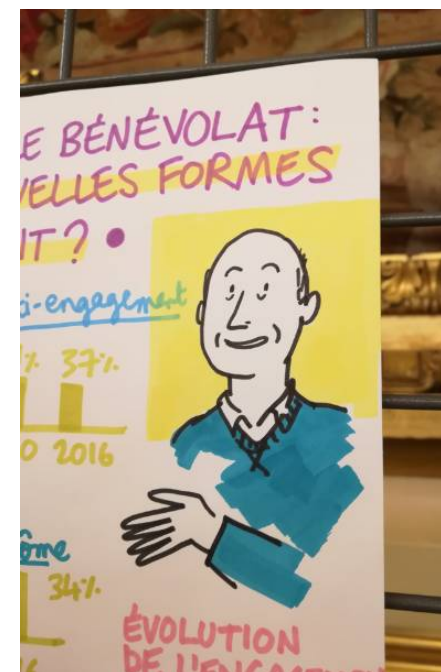 E BÉNÉVOLAT:
VELLES FORMES
NT? •
i-engagement
% 37%
0 2016
ôme
34%
16
ÉVOLUTION
DE L'ENGAGEMENT